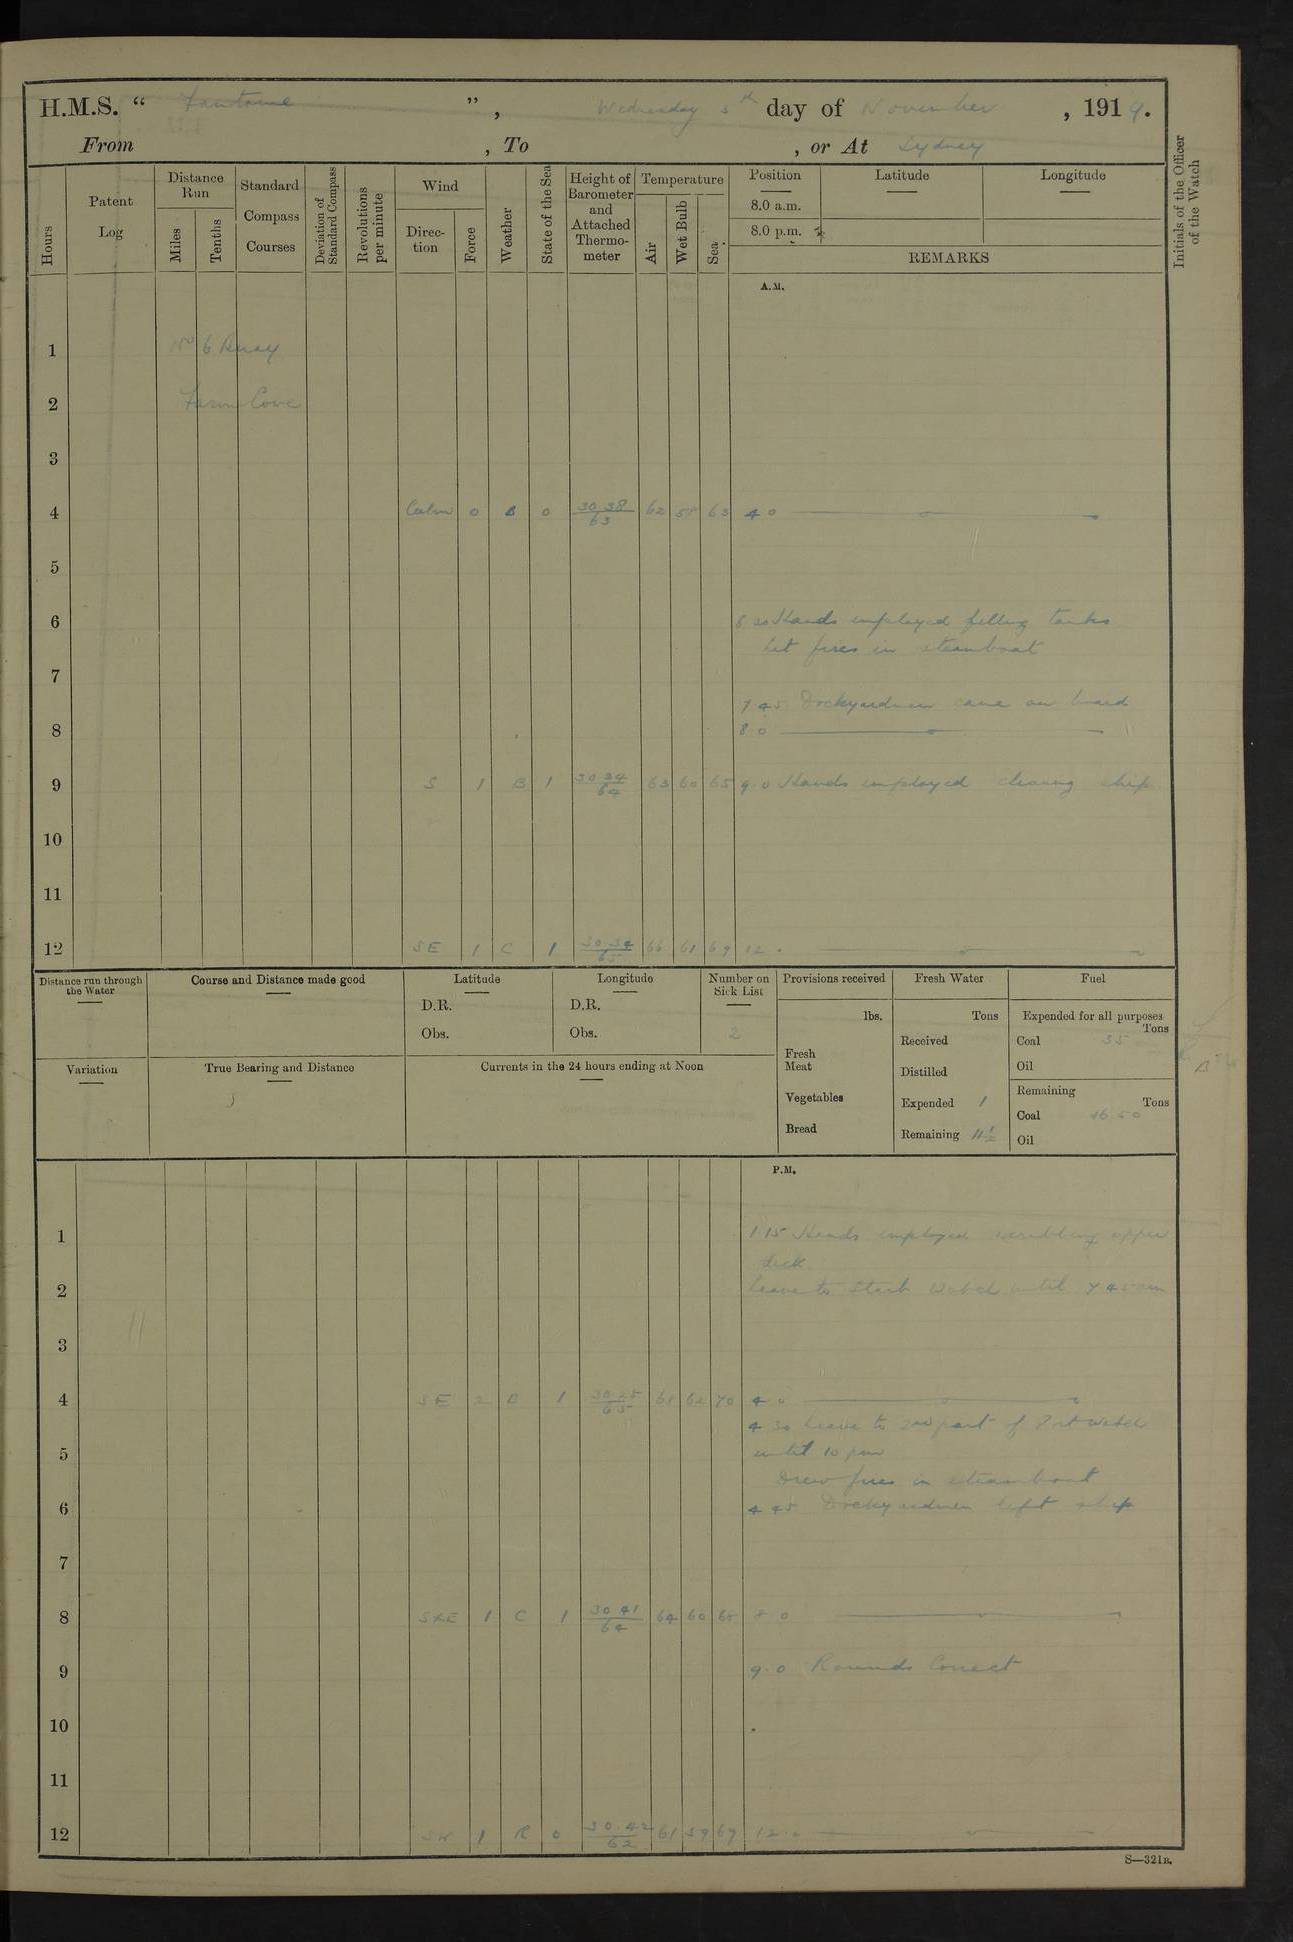 H.M.S. " Fantome ", Wednesday 5th day of November, 1919.
From , To , or At Sydney
Hours
Patent Log
Distance Run
Miles
Tenths
Standard Compass Courses
Deviation of Standard Compass
Revolutions per minute
Wind
Direction
Force
Weather
State of the Sea
Height of Barometer and Attached Thermometer
Temperature
Air
Wet Bulb
Sea
Position
8.0 a.m.
8.0 p.m.
Latitude
Longitude
REMARKS
Initials of the Officer of the Watch
A.M.
1 No 6 Buoy
2 Farm Cove
3
4 Calm 0 B 0 30.38/63 62 58 63 4 0
5
6 Hands employed filling tanks
Lit fires in steamboat
7
7 45 Dockyardmen came on board
8 8 0
9 S 1 B 1 30 34/64 63 60 65 9.0 Hands employed cleaning ship
10
11
12 SE 1 C 1 30.34/65 66 61 69 12 .
Distance run through the Water
Course and Distance made good
Latitude
D.R.
Obs.
Longitude
D.R.
Obs.
Number on Sick List
2
Provisions received
lbs.
Fresh Meat
Vegetables
Bread
Fresh Water
Tons
Received
Distilled
Expended 1
Remaining 11 1/2
Fuel
Expended for all purposes
Tons
Coal 35
Oil
Remaining
Tons
Coal 46.50
Oil
Variation
True Bearing and Distance
Currents in the 24 hours ending at Noon
P.M.
1 1 15 Hands employed scrubbing upper
deck
2 Leave to Starb Watch until 7 45 am
3
4 SE 2 B 1 30 25/65 61 62 70 4 0
4 30 Leave to 2nd part of Port watch
5 until 10 pm
Drew fires in steamboat
6 4 45 Dockyardmen left ship
7
8 SxE 1 C 1 30 41/64 64 60 65 8 0
9 9.0 Rounds Correct
10
11
12 SW 1 R 0 30.42/62 61 59 69 12 .
S—321B.